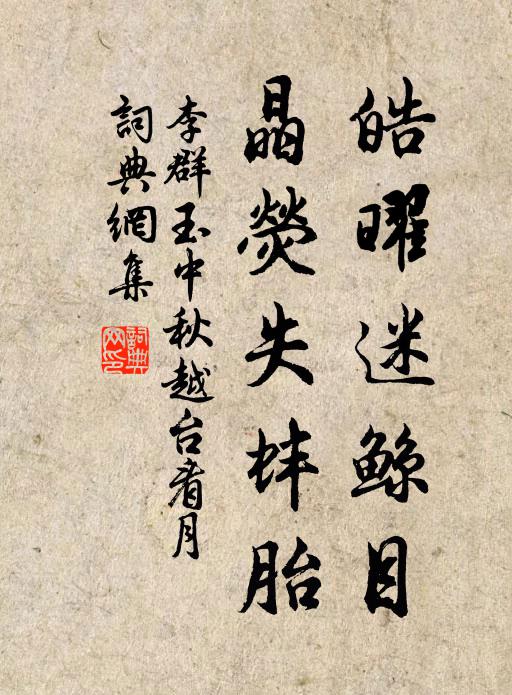 皓曜迷鲸目
晶熒失蚌胎
李群玉中秋越台看月
詞典網集
詞典網印